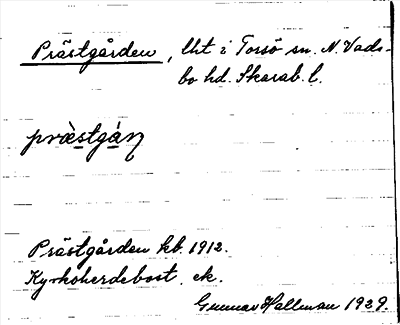 Prästgården, lht i Torsö sn. N. Vads-
bo hd. Skarab. l.
præstgán
Prästgården kb. 1912.
Kyrkoherdebost. ek.
Gunnar Hallman 1929.